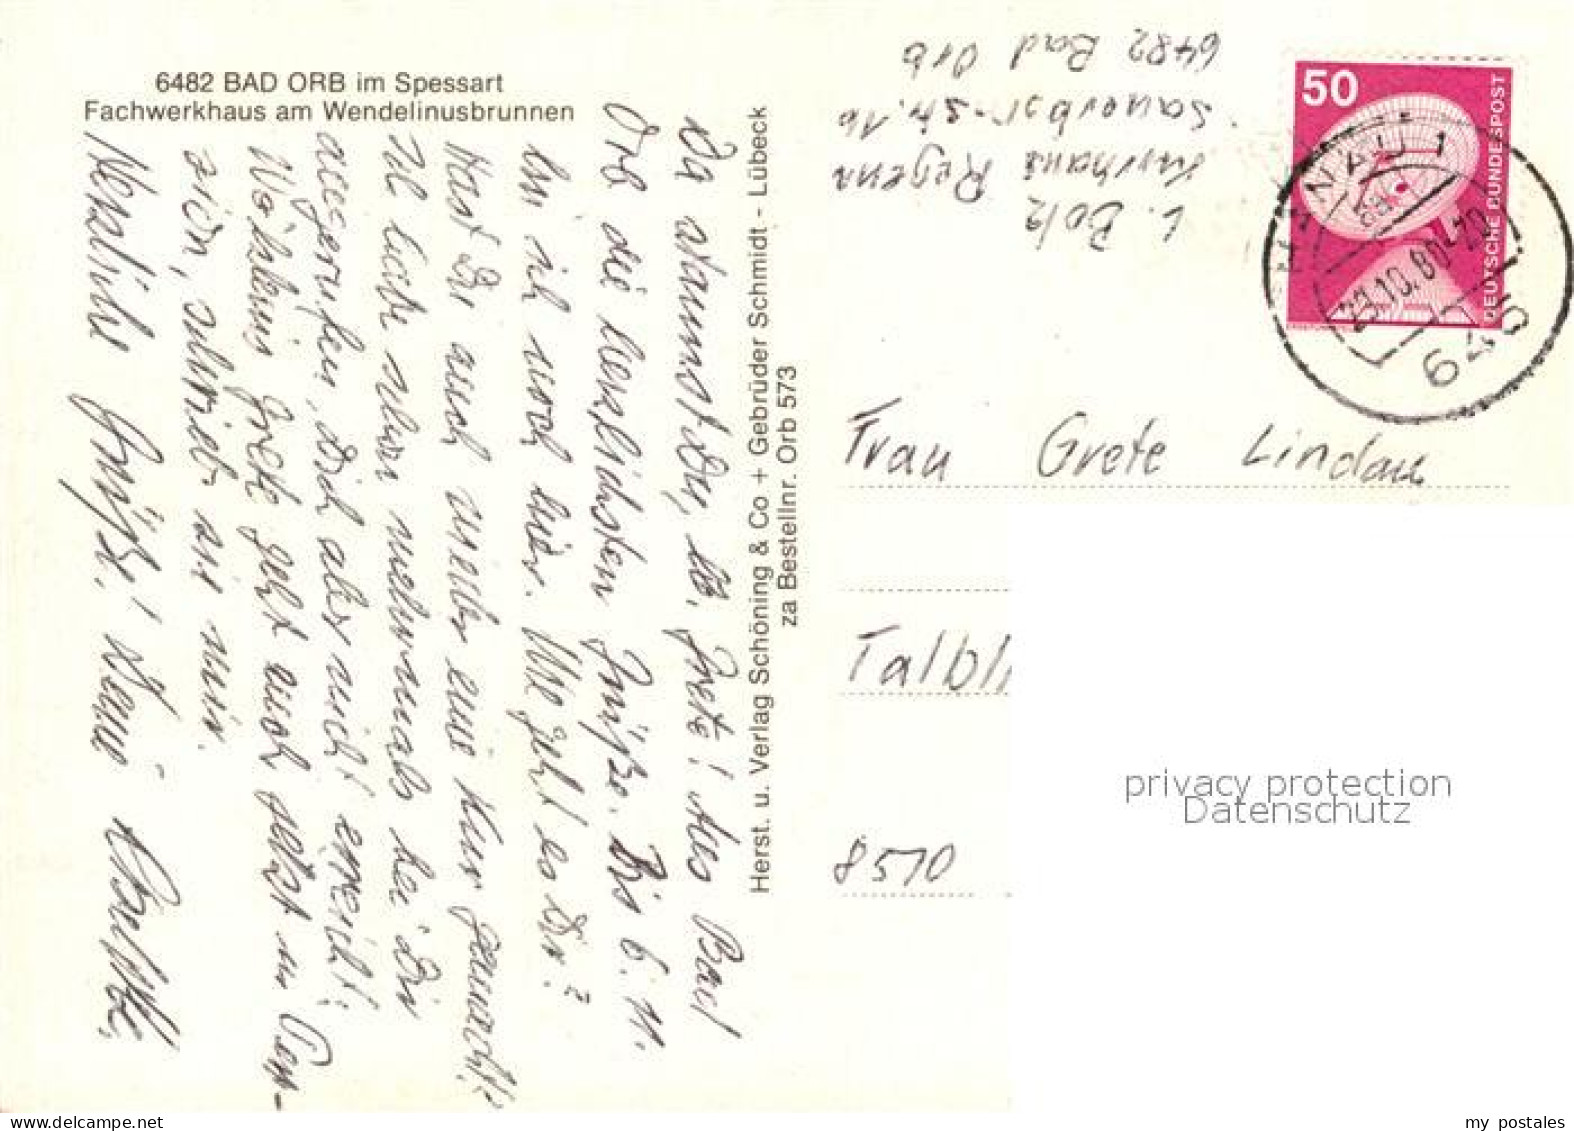 6482 BAD ORB im Spessart
Fachwerkhaus am Wendelinusbrunnen
Da staunst Du, lb. Grete! Aus Bad
Orb die herzlichsten Grüße. Bis 6. 11.
bin ich noch hier. Wie geht es Dir?
Hast Du auch wieder eine Kur gemacht?
Ich habe schon mehrmals bei Dir
angerufen, Dich aber nicht erreicht.
Grete geht auch jetzt in Pen-
sion, schrieb sie mir.
Herzliche Grüße! Deine
Herst. u. Verlag Schöning & Co + Gebrüder Schmidt - Lübeck
za Bestellnr. Orb 573
L. Bolz
Kurhaus Regena
Sauerborn-str. 1b
6482 Bad Orb
50
DEUTSCHE BUNDESPOST
GELNHAUSEN 1
23.10.80-20
6460
Frau Grete Lindau
Talbli
8510
privacy protection
Datenschutz
my postales